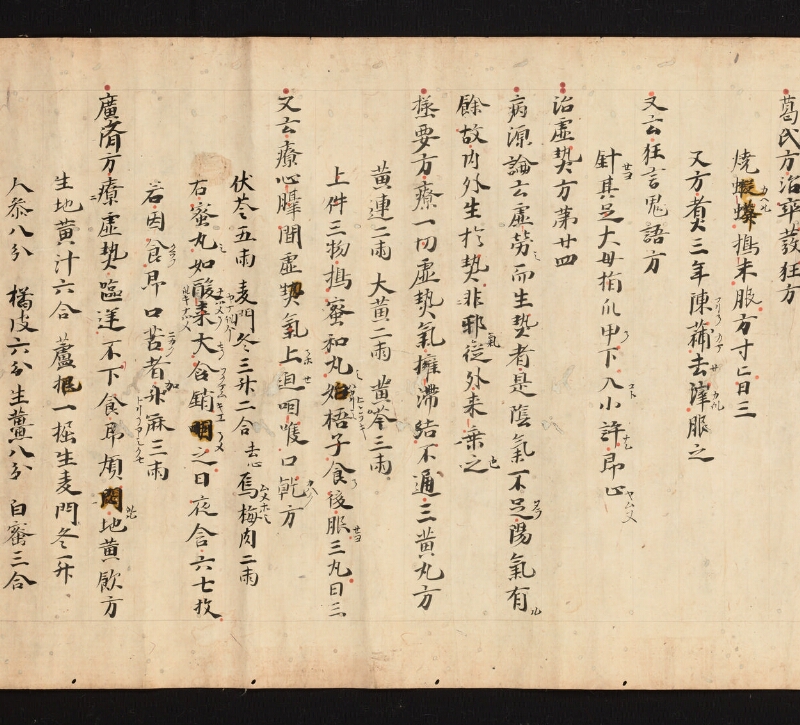 葛氏方治卒發狂方
燒蝦蟆搗末服方寸匕日三
又方煑三年陳蒲去滓服之
又云狂言鬼語方
針其足大母指爪甲下入小許即止
治虛熱方第廿四
病源論云虛勞而生熱者是陰氣不足陽氣有
餘故内外生於熱非邪氣從外来乗之也
集要方療一切虛熱氣擁滯結不通三黄丸方
黄連二兩 大黄二兩 黄芩三兩
上件三物搗蜜和丸如梧子食後服三丸日三
又云療心膈間虛熱氣上迫咽喉口乾方
伏苓五兩 麦門冬三升二合去心 烏梅肉二兩
右蜜丸如酸棗大含銷咽之日夜含六七枚
若因食即口苦者加升麻三兩
廣濟方療虛熱嘔逆不下食即煩悶地黄飲方
生地黄汁六合 蘆根一握 生麦門冬一升
人参八分 橘皮六分 生薑八分 白蜜三合